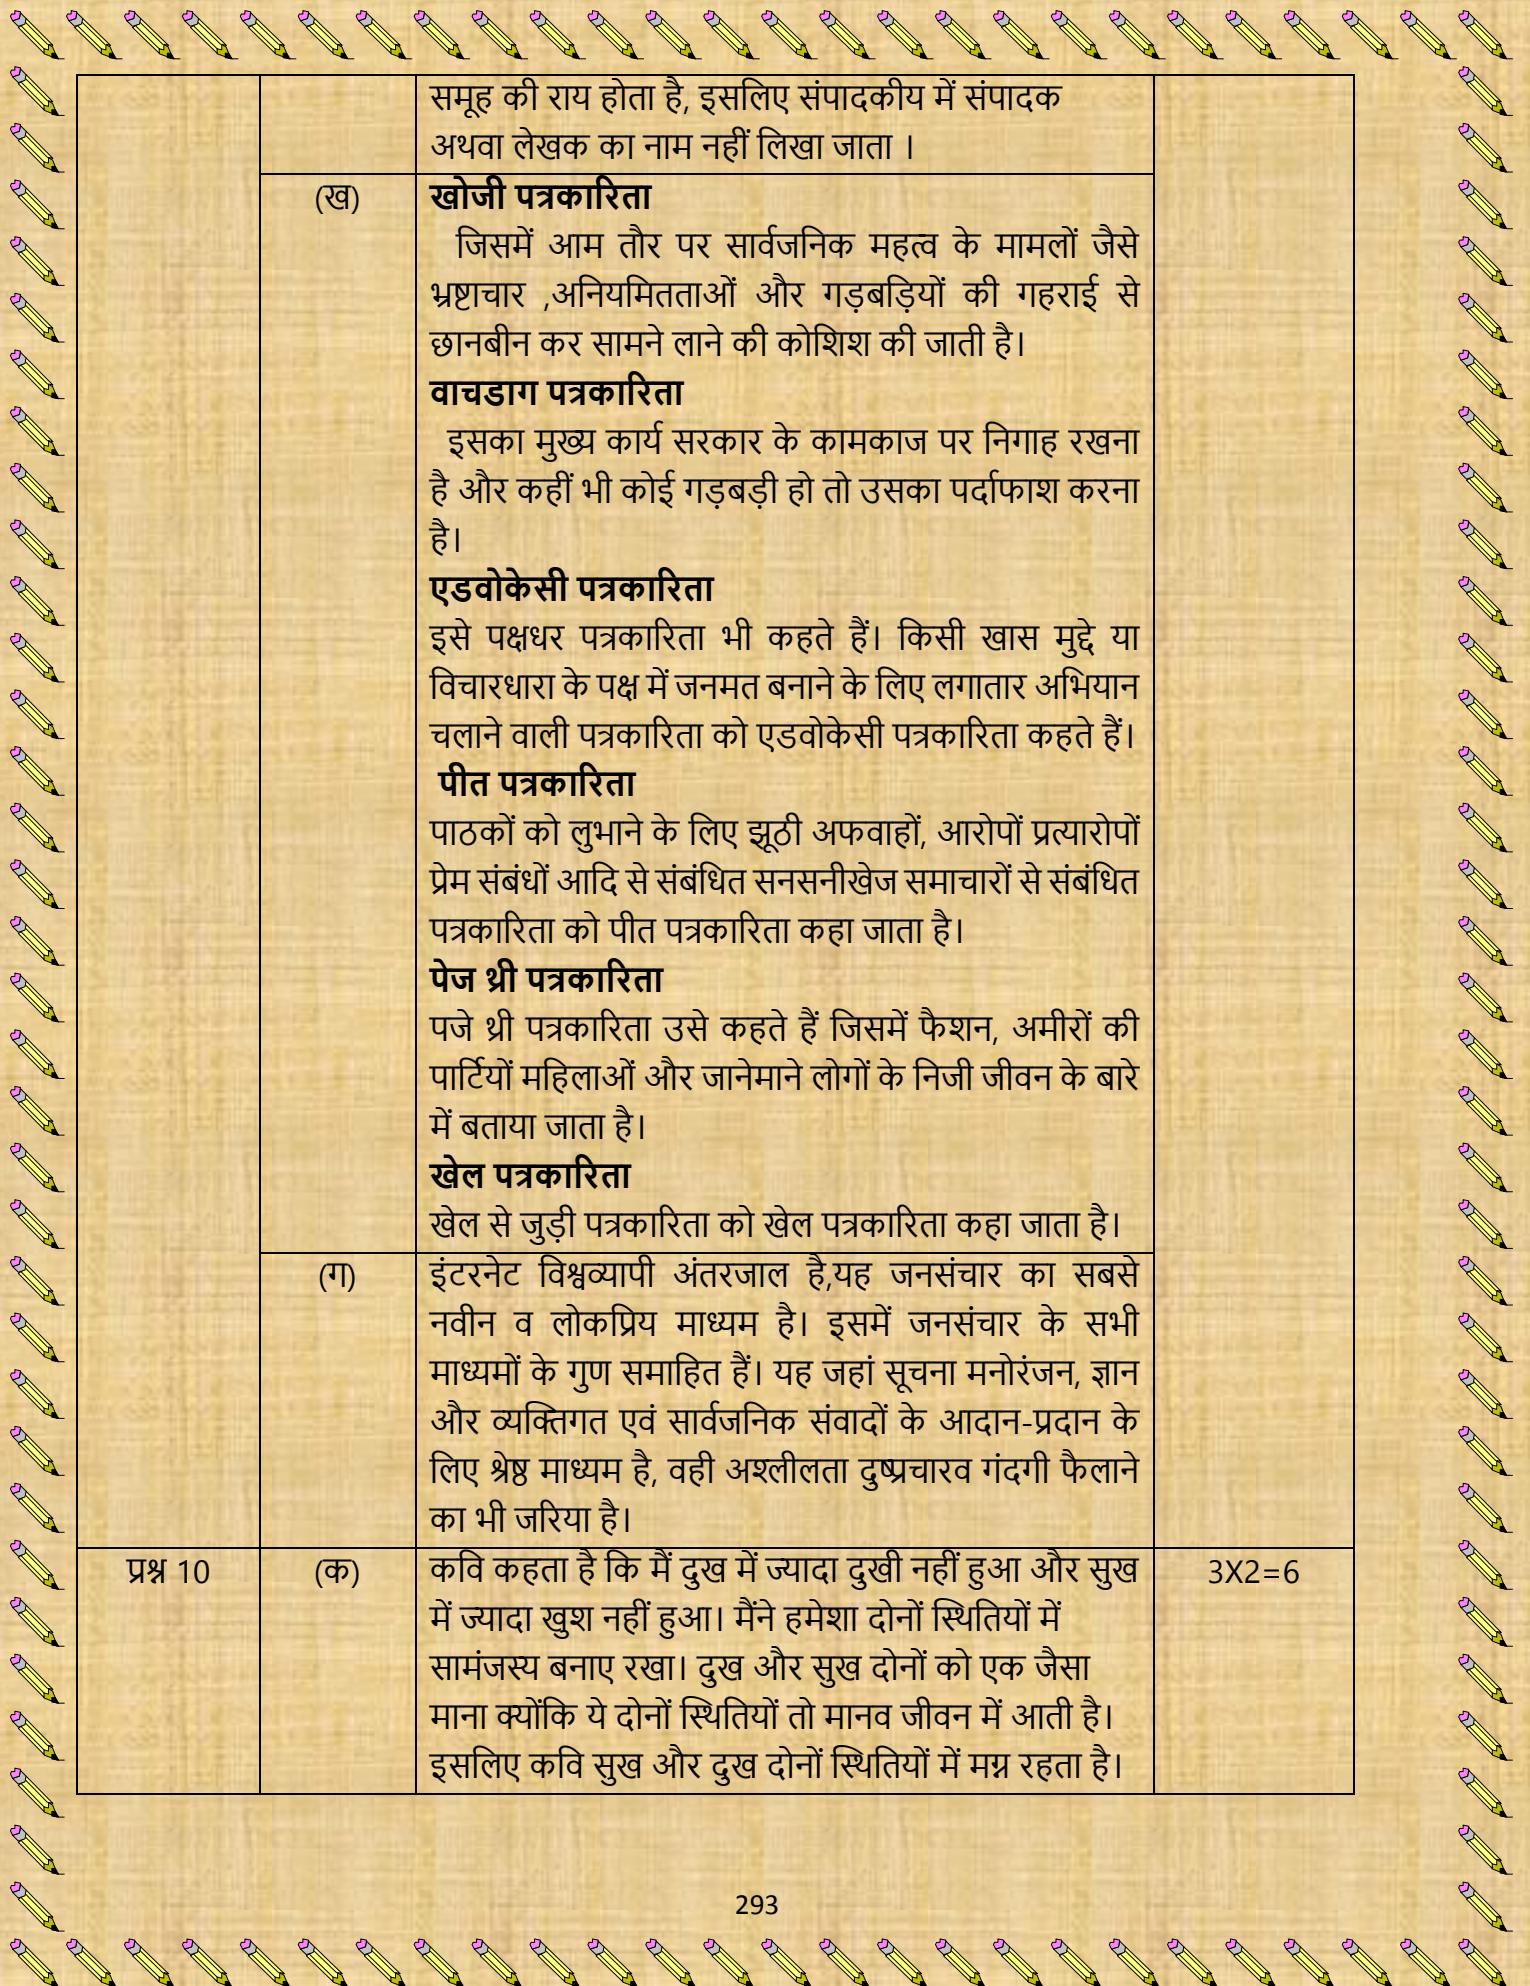 समूह की राय होता है, इसलिए संपादकीय में संपादक
अथवा लेखक का नाम नहीं लिखा जाता ।
(ख)
खोजी पत्रकारिता
जिसमें आम तौर पर सार्वजनिक महत्व के मामलों जैसे
भ्रष्टाचार ,अनियमितताओं और गड़बड़ियों की गहराई से
छानबीन कर सामने लाने की कोशिश की जाती है।
वाचडाग पत्रकारिता
इसका मुख्य कार्य सरकार के कामकाज पर निगाह रखना
है और कहीं भी कोई गड़बड़ी हो तो उसका पर्दाफाश करना
है।
एडवोकेसी पत्रकारिता
इसे पक्षधर पत्रकारिता भी कहते हैं। किसी खास मुद्दे या
विचारधारा के पक्ष में जनमत बनाने के लिए लगातार अभियान
चलाने वाली पत्रकारिता को एडवोकेसी पत्रकारिता कहते हैं।
पीत पत्रकारिता
पाठकों को लुभाने के लिए झूठी अफवाहों, आरोपों प्रत्यारोपों
प्रेम संबंधों आदि से संबंधित सनसनीखेज समाचारों से संबंधित
पत्रकारिता को पीत पत्रकारिता कहा जाता है।
पेज थ्री पत्रकारिता
पजे थ्री पत्रकारिता उसे कहते हैं जिसमें फैशन, अमीरों की
पार्टियों महिलाओं और जानेमाने लोगों के निजी जीवन के बारे
में बताया जाता है।
खेल पत्रकारिता
खेल से जुड़ी पत्रकारिता को खेल पत्रकारिता कहा जाता है।
(ग)
इंटरनेट विश्वव्यापी अंतरजाल है,यह जनसंचार का सबसे
नवीन व लोकप्रिय माध्यम है। इसमें जनसंचार के सभी
माध्यमों के गुण समाहित हैं। यह जहां सूचना मनोरंजन, ज्ञान
और व्यक्तिगत एवं सार्वजनिक संवादों के आदान-प्रदान के
लिए श्रेष्ठ माध्यम है, वही अश्लीलता दुष्प्रचारव गंदगी फैलाने
का भी जरिया है।
प्रश्न 10
(क)
कवि कहता है कि मैं दुख में ज्यादा दुखी नहीं हुआ और सुख
में ज्यादा खुश नहीं हुआ। मैंने हमेशा दोनों स्थितियों में
सामंजस्य बनाए रखा। दुख और सुख दोनों को एक जैसा
माना क्योंकि ये दोनों स्थितियों तो मानव जीवन में आती है।
इसलिए कवि सुख और दुख दोनों स्थितियों में मग्न रहता है।
3X2=6
293